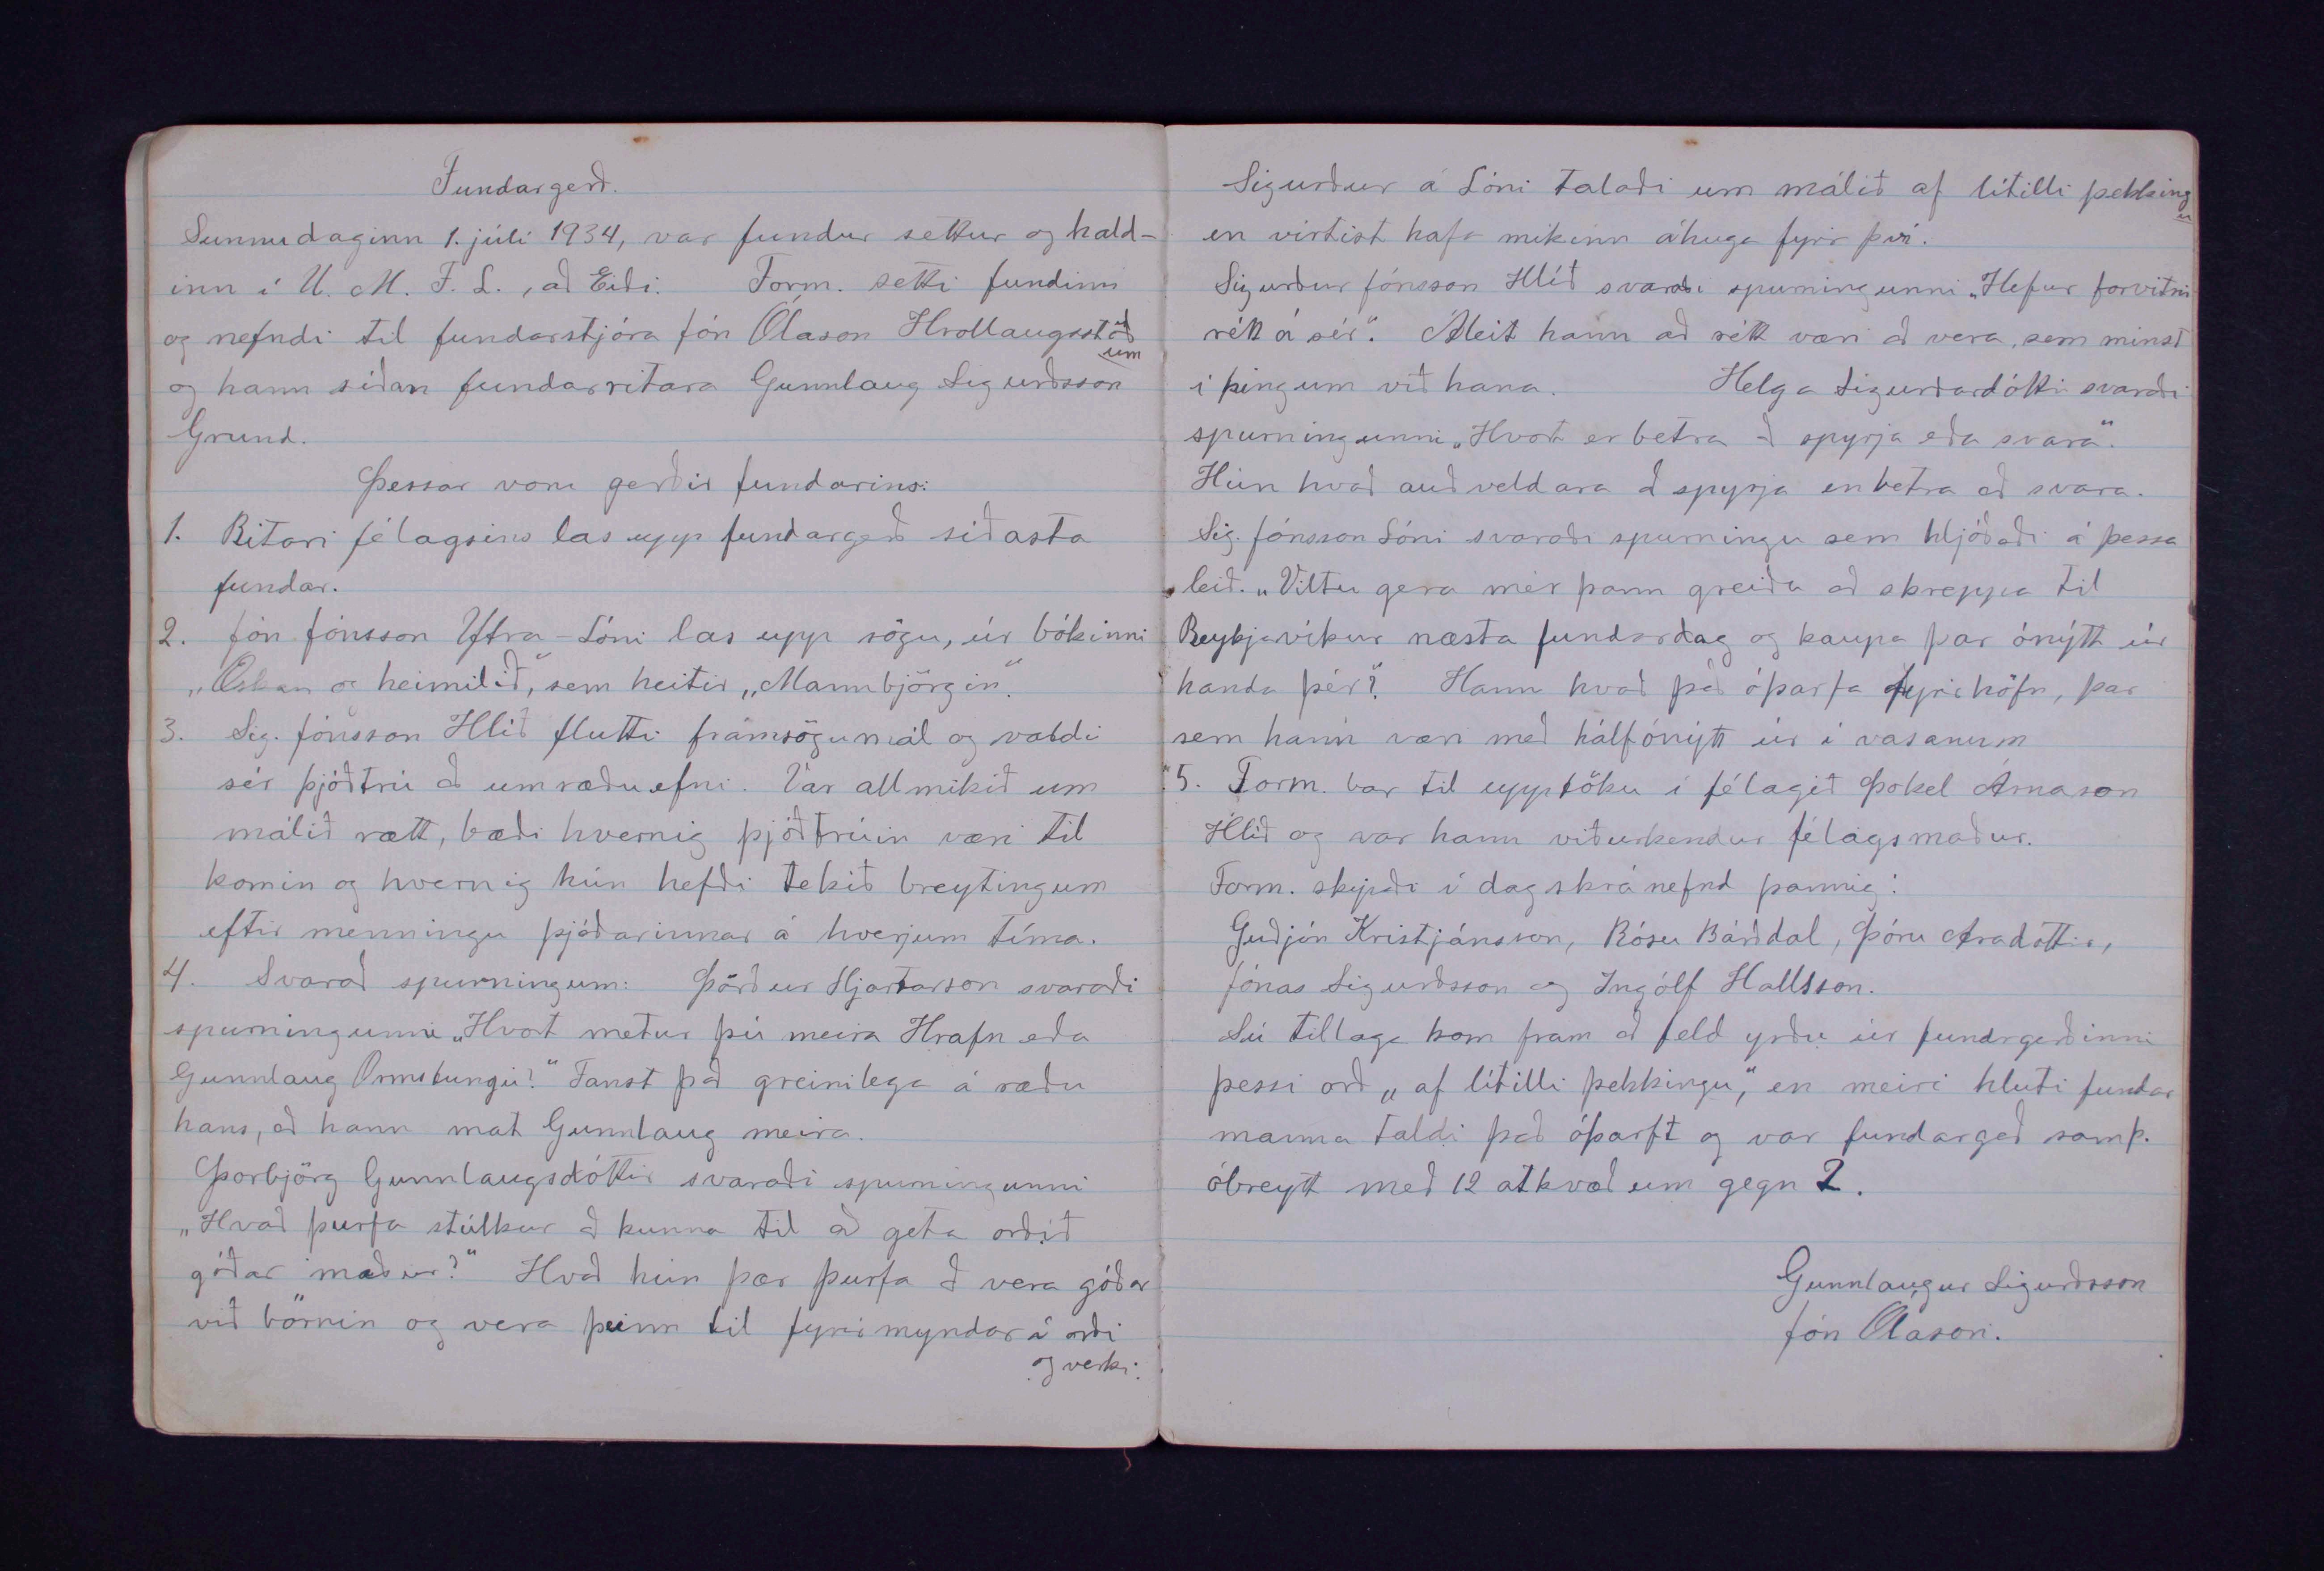 Fundargerð.
Sunnudaginn 1. júlí 1934, var fundur settur og hald-
inn í U. M. F. L., að Eiði. Form. setti fundinn
og nefndi til fundarstjóra Jón Ólason Hrollaugsstöð
um
og hann síðan fundarritara Gunnlaug Sigurðsson
Grund.
Þessar voru gerðir fundarins:
1. Ritari félagsins las upp fundargerð síðasta
fundar.
2. Jón Jónsson Ytra-Lóni las upp sögu, úr bókinni
„Æskan og heimilið", sem heitir „Mannbjörgin".
3. Sig. Jónsson Hlíð flutti framsögumál og valdi
sér þjóðtrú að umræðuefni. Var allmikið um
málið rætt, bæði hvernig þjóðtrúin væri til
komin og hvernig hún hefði tekið breytingum
eftir menningu þjóðarinnar á hverjum tíma.
4. Svarað spurningum: Þórður Hjartarson svaraði
spurningunni „Hvort metur þú meira Hrafn eða
Gunnlaug Ormstungu?" Fanst það greinilega á ræðu
hans, að hann mat Gunnlaug meira.
Þorbjörg Gunnlaugsdóttir svaraði spurningunni
„Hvað þurfa stúlkur að kunna til að geta orðið
góðar mæður?" Hvað hún þær þurfa að vera góðar
við börnin og vera þeim til fyrirmyndar í orði
og verki.
Sigurður á Lóni talaði um málið af lítilli þekking
u
en virtist hafa mikinn áhuga fyrir því.
Sigurður Jónsson Hlíð svaraði spurningunni „Hefur forvitni
rétt á sér". Áleit hann að rétt væri að vera sem minst
í þingum við hana. Helga Sigurðardóttir svaraði
spurningunni „Hvort er betra að spyrja eða svara".
Hún hvað auðveldara að spyrja en betra að svara.
Sig. Jónsson Lóni svaraði spurningu sem hljóðaði á þessa
leið. „Viltu gera mér þann greiða að skreppa til
Reykjavíkur næsta fundardag og kaupa þar ónýtt úr
handa þér?" Hann hvað það óþarfa fyrirhöfn, þar
sem hann væri með hálfónýtt úr í vasanum
5. Form. bar til upptöku í félagið Þokel Árnason
Hlíð og var hann viðurkendur félagsmaður.
Form. skipaði í dagskránefnd þannig:
Guðjón Kristjánsson, Rósu Bárðdal, Þóru Aradóttir,
Jónas Sigurðsson og Ingólf Hallsson.
Sú tillaga kom fram að feld yrðu úr fundrgerðinni
þessi orð „af lítilli þekkingu", en meiri hluti fundar
manna taldi það óþarft og var fundargerð samþ.
óbreytt með 12 atkvæðum gegn 2.
Gunnlaugur Sigurðsson
Jón Ólason.